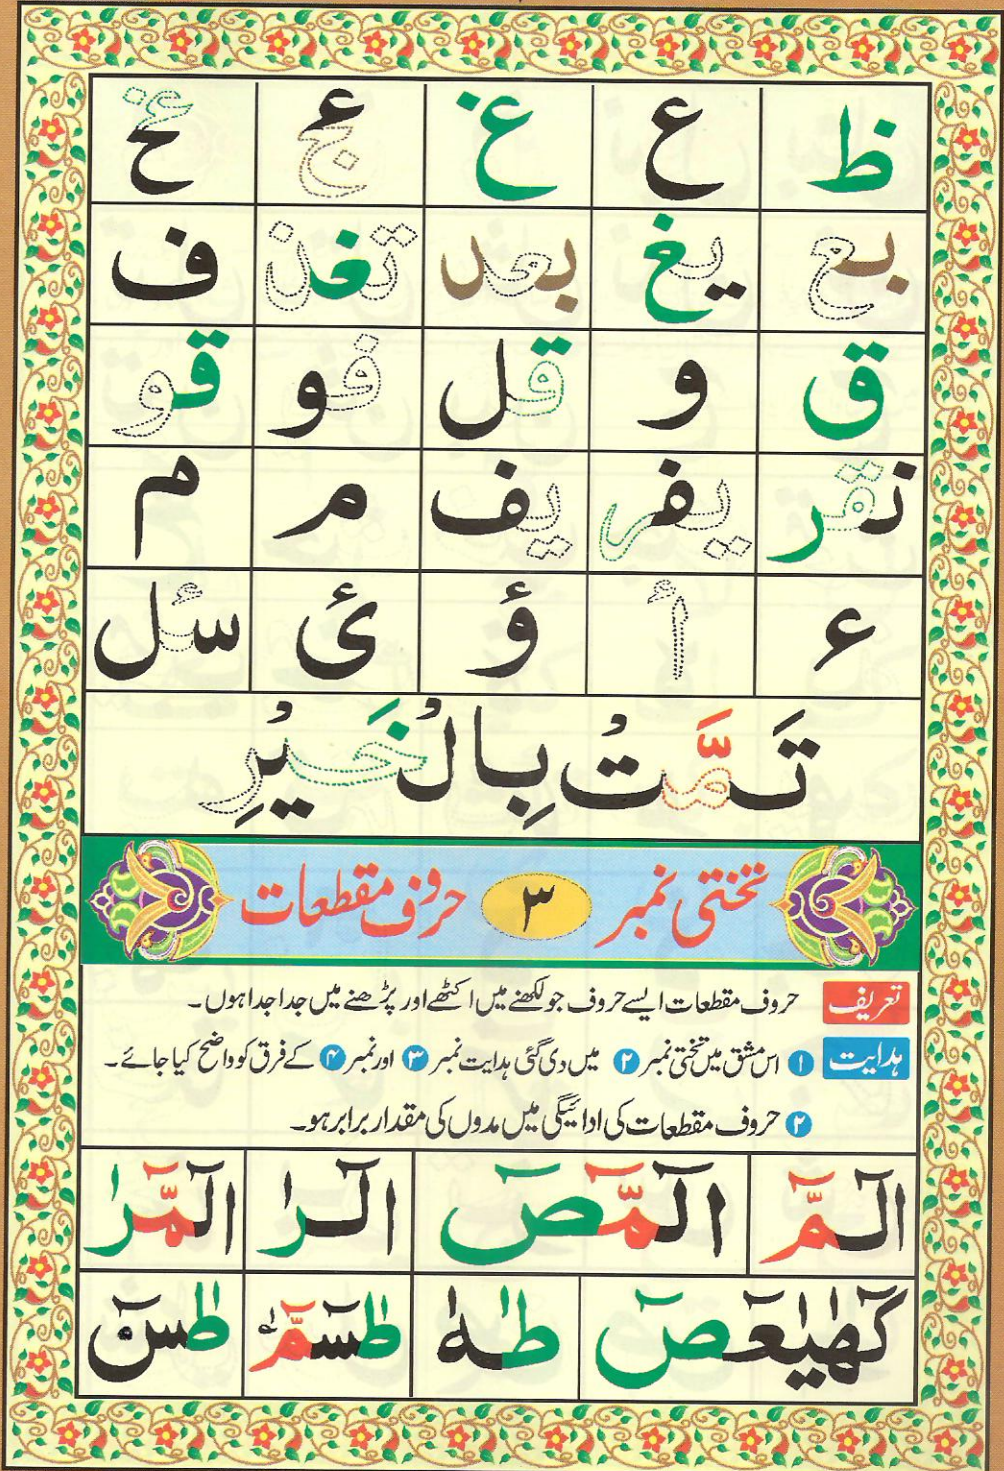 ظ ع غ عج عخ
بع یغ بعد تغذ ف
ق و قل فو قو
نقر یفر یف م م
ء أ ؤ ئ سئل
تَمَّتْ بِالْخَیْرِ
تختی نمبر ۳ حروف مقطعات
تعریف حروف مقطعات ایسے حروف جو لکھنے میں اکٹھے اور پڑھنے میں جدا جدا ہوں۔
ہدایت ۱ اس مشق میں تختی نمبر ۲ میں دی گئی ہدایت نمبر ۳ اور نمبر ۴ کے فرق کو واضح کیا جائے۔
۲ حروف مقطعات کی ادائیگی میں مدوں کی مقدار برابر ہو۔
الٓمّٓ الٓمّٓصٓ الٓرٰ الٓمّٓرٰ
كٓهٰیٰعٓصٓ طٰهٰ طٰسٓمّٓ طٰسٓ